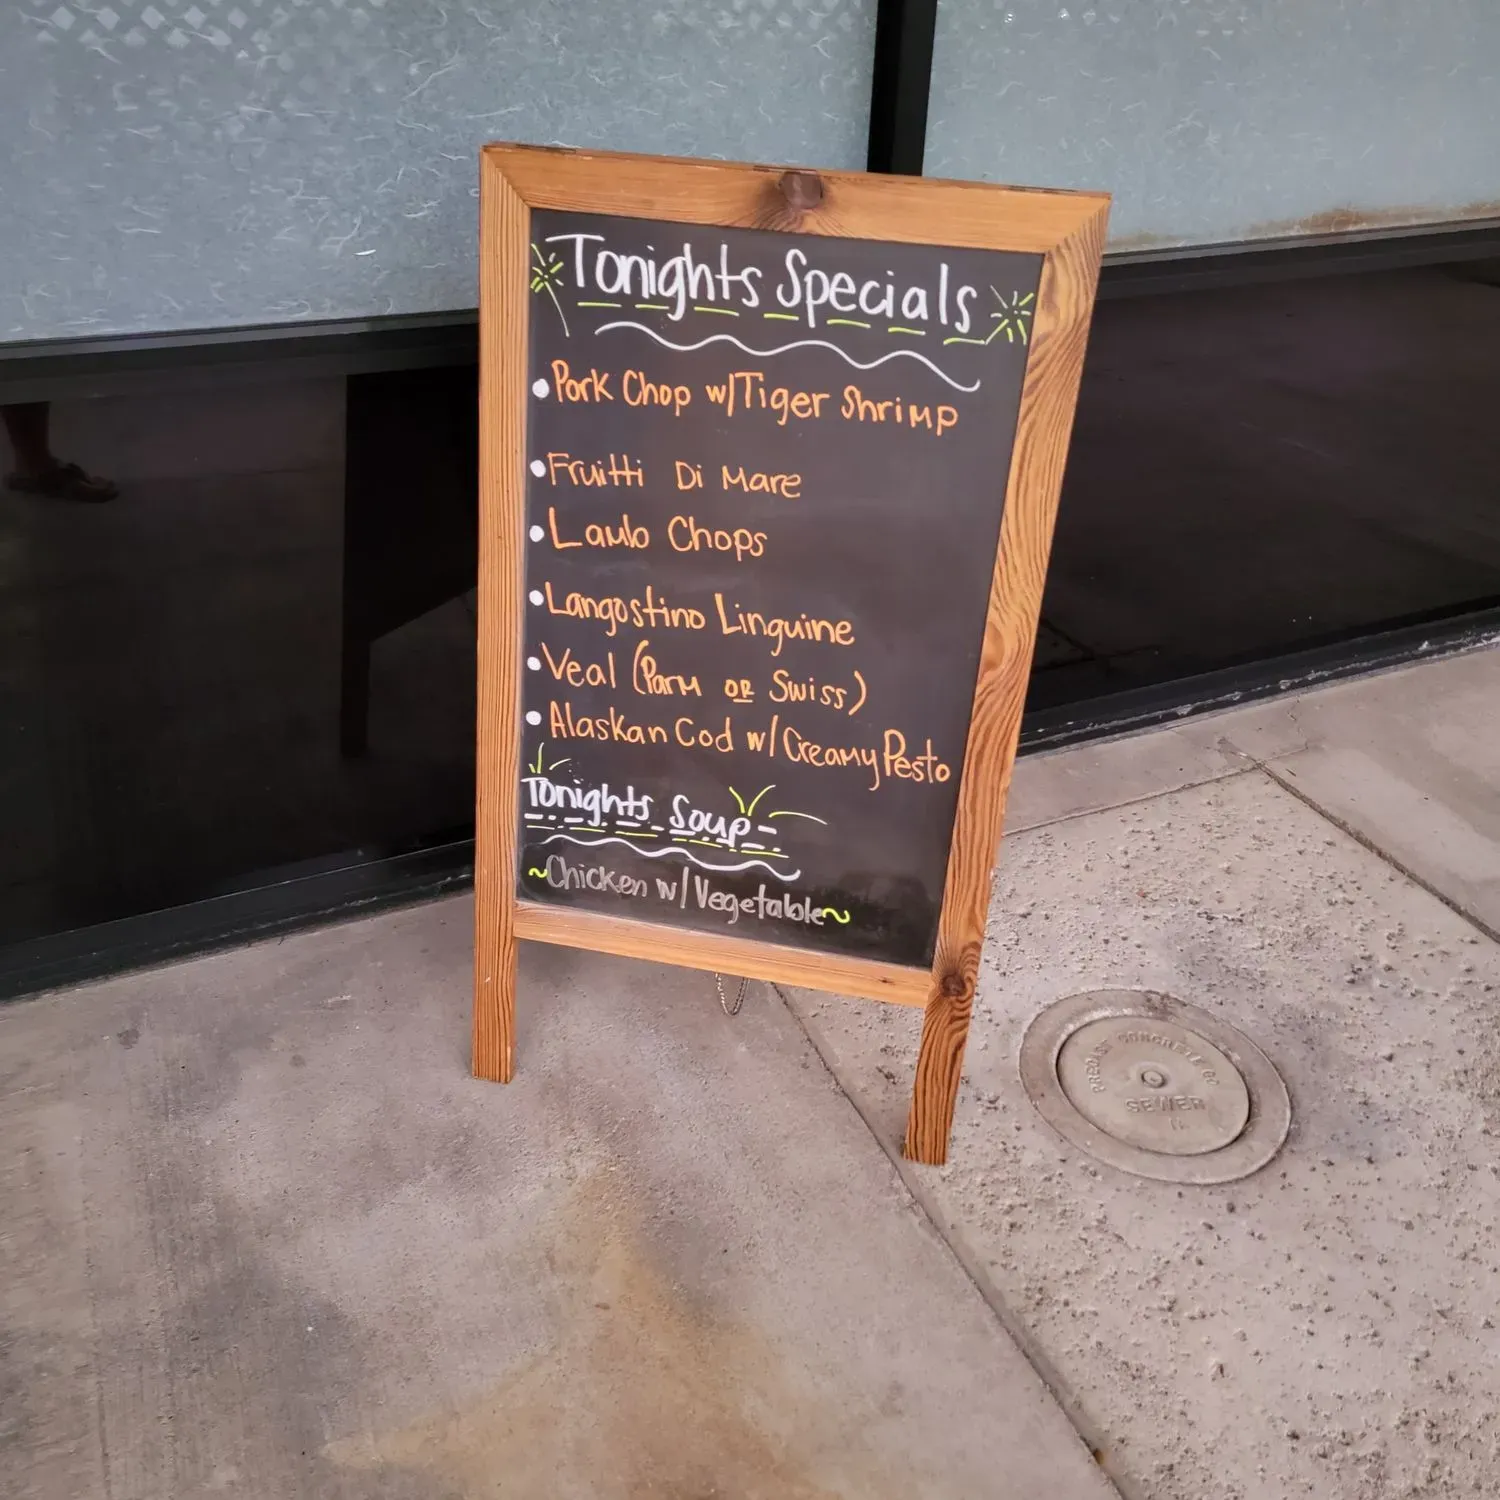 Tonights Specials
Pork Chop w/Tiger Shrimp
Fruitti Di Mare
Lamb Chops
Langostino Linguine
Veal (Parm OR Swiss)
Alaskan Cod w/Creamy Pesto
Tonights Soup-
~Chicken w/Vegetable~
CONCRETE CO
SEWER